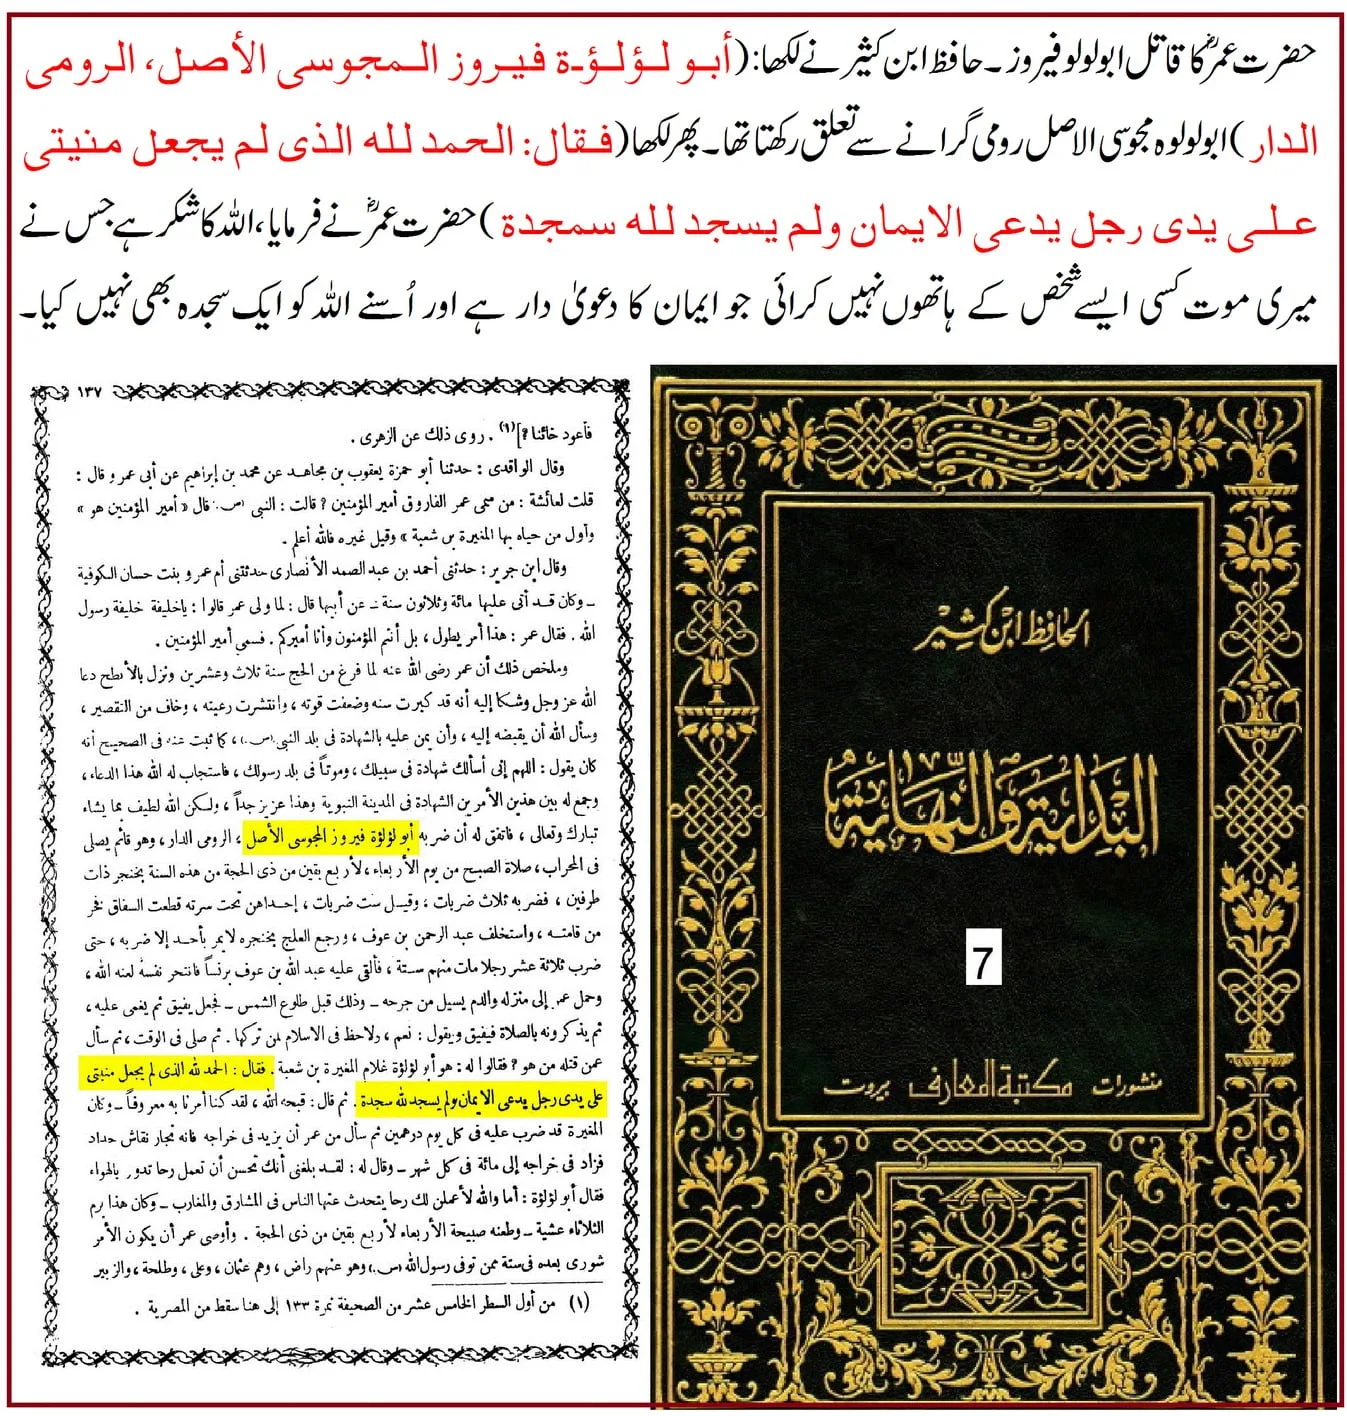 حضرت عمرؓ کا قاتل ابولولو فیروز۔ حافظ ابن کثیر نے لکھا: (أبو لؤلؤة فیروز المجوسی الأصل، الرومی
الدار) ابولولوہ مجوسی الاصل رومی گرانے سے تعلق رکھتا تھا۔ پھر لکھا (فقال: الحمد لله الذی لم یجعل منیتی
علی یدی رجل یدعی الایمان ولم یسجد لله سمجدة) حضرت عمرؓ نے فرمایا، اللہ کا شکر ہے جس نے
میری موت کسی ایسے شخص کے ہاتھوں نہیں کرائی جو ایمان کا دعویٰ دار ہے اور اُسنے اللہ کو ایک سجدہ بھی نہیں کیا۔
١٣٧
فأعود خائنا؟](١) . روى ذلك عن الزهرى .
وقال الواقدى : حدثنا أبو حمزة يعقوب بن مجاهد عن محمد بن إبراهيم عن أبى عمرو قال :
قلت لعائشة : من سمى عمر الفاروق أمير المؤمنين ؟ قالت : النبى (س) قال « أمير المؤمنين هو »
وأول من حياه بها المغيرة بن شعبة » وقيل غيره فالله أعلم .
وقال ابن جرير : حدثنى أحمد بن عبد الصمد الأنصارى حدثتنى أم عمرو بنت حسان الكوفية
ـ وكان قد أتى عليها مائة وثلاثون سنة ـ عن أبيها قال : لما ولى عمر قالوا : ياخليفة خليفة رسول
الله . فقال عمر : هذا أمر يطول ، بل أنتم المؤمنون وأنا أميركم . فسمى أمير المؤمنين .
وملخص ذلك أن عمر رضى الله عنه لما فرغ من الحج سنة ثلاث وعشرين ونزل بالأبطح دعا
الله عز وجل وشكا إليه أنه قد كبرت سنه وضعفت قوته ، وانتشرت رعيته ، وخاف من التقصير ،
وسأل الله أن يقبضه إليه ، وأن يمن عليه بالشهادة فى بلد النبى (س) ، كما ثبت عنه فى الصحيح أنه
كان يقول : اللهم إنى أسألك شهادة فى سبيلك ، وموتاً فى بلد رسولك ، فاستجاب له الله هذا الدعاء ،
وجمع له بين هذين الأمرين الشهادة فى المدينة النبوية وهذا عزيز جداً ، ولكن الله لطيف بما يشاء
تبارك وتعالى ، فاتفق له أن ضربه أبو لؤلؤة فيروز المجوسى الأصل ، الرومى الدار ، وهو قائم يصلى
فى المحراب ، صلاة الصبح من يوم الأربعاء ، لأربع بقين من ذى الحجة من هذه السنة بخنجر ذات
طرفين ، فضربه ثلاث ضربات ، وقيل ست ضربات ، إحداهن تحت سرته قطعت السفاق فخر
من قامته ، واستخلف عبد الرحمن بن عوف ، ورجع العلج بخنجره لايمر بأحد إلا ضربه ، حتى
ضرب ثلاثة عشر رجلا مات منهم ستة ، فألقى عليه عبد الله بن عوف برنساً فانتحر نفسه لعنه الله ،
وحمل عمر إلى منزله والدم يسيل من جرحه ـ وذلك قبل طلوع الشمس ـ فجعل يفيق ثم يغمى عليه ،
ثم يذكرونه بالصلاة فيفيق ويقول : نعم ، ولاحظ فى الاسلام لمن تركها . ثم صلى فى الوقت ، ثم سأل
عمن قتله من هو ؟ فقالوا له : هو أبو لؤلؤة غلام المغيرة بن شعبة . فقال : الحمد لله الذى لم يجعل منيتى
على يدى رجل يدعى الايمان ولم يسجد لله سجدة . ثم قال : قبحه الله ، لقد كنا أمرنا به معروفاً ـ وكان
المغيرة قد ضرب عليه فى كل يوم درهمين ثم سأل من عمر أن يزيد فى خراجه فانه نجار نقاش حداد
فزاد فى خراجه إلى مائة فى كل شهر ـ وقال له : لقد بلغنى أنك تحسن أن تعمل رحا تدور بالهواء ،
فقال أبو لؤلؤة : أما والله لأعملن لك رحا يتحدث عنها الناس فى المشارق والمغارب ـ وكان هذا يوم
الثلاثاء عشية ـ وطعنه صبيحة الأربعاء لأربع بقين من ذى الحجة . وأوصى عمر أن يكون الأمر
شورى بعده فى ستة ممن توفى رسول الله (س) وهو عنهم راض ، وهم عثمان ، وعلى ، وطلحة ، والزبير
(١) من أول السطر الخامس عشر من الصحيفة نمرة ١٣٣ إلى هنا سقط من المصرية .
الحافظ ابن كثير
البداية والنهاية
7
منشورات مكتبة المعارف بيروت